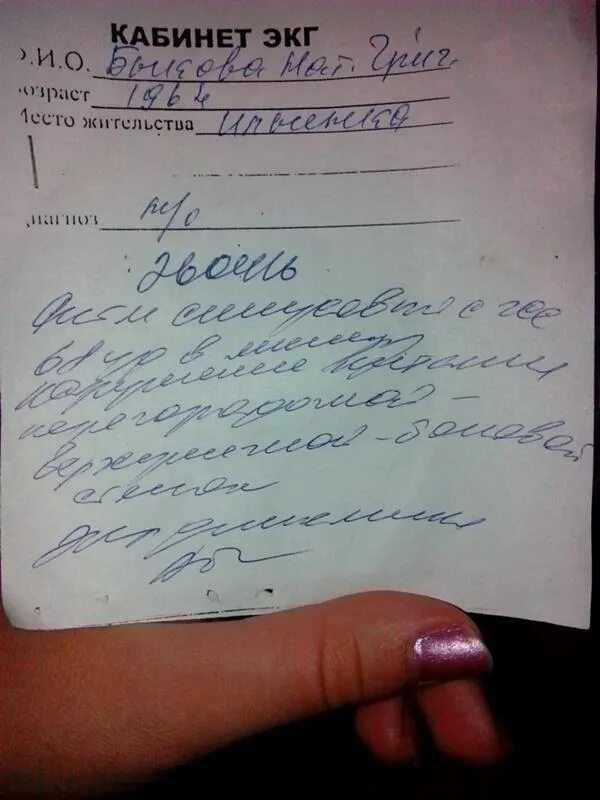 КАБИНЕТ ЭКГ
Ф.И.О. Быкова Нат. Григ.
возраст 1964
Место жительства Ильинка
диагноз п/о
Ритм синусовый с чсс
68 уд в мин
нарушение питания
перегородочной -
верхушечной - боковой
стенок